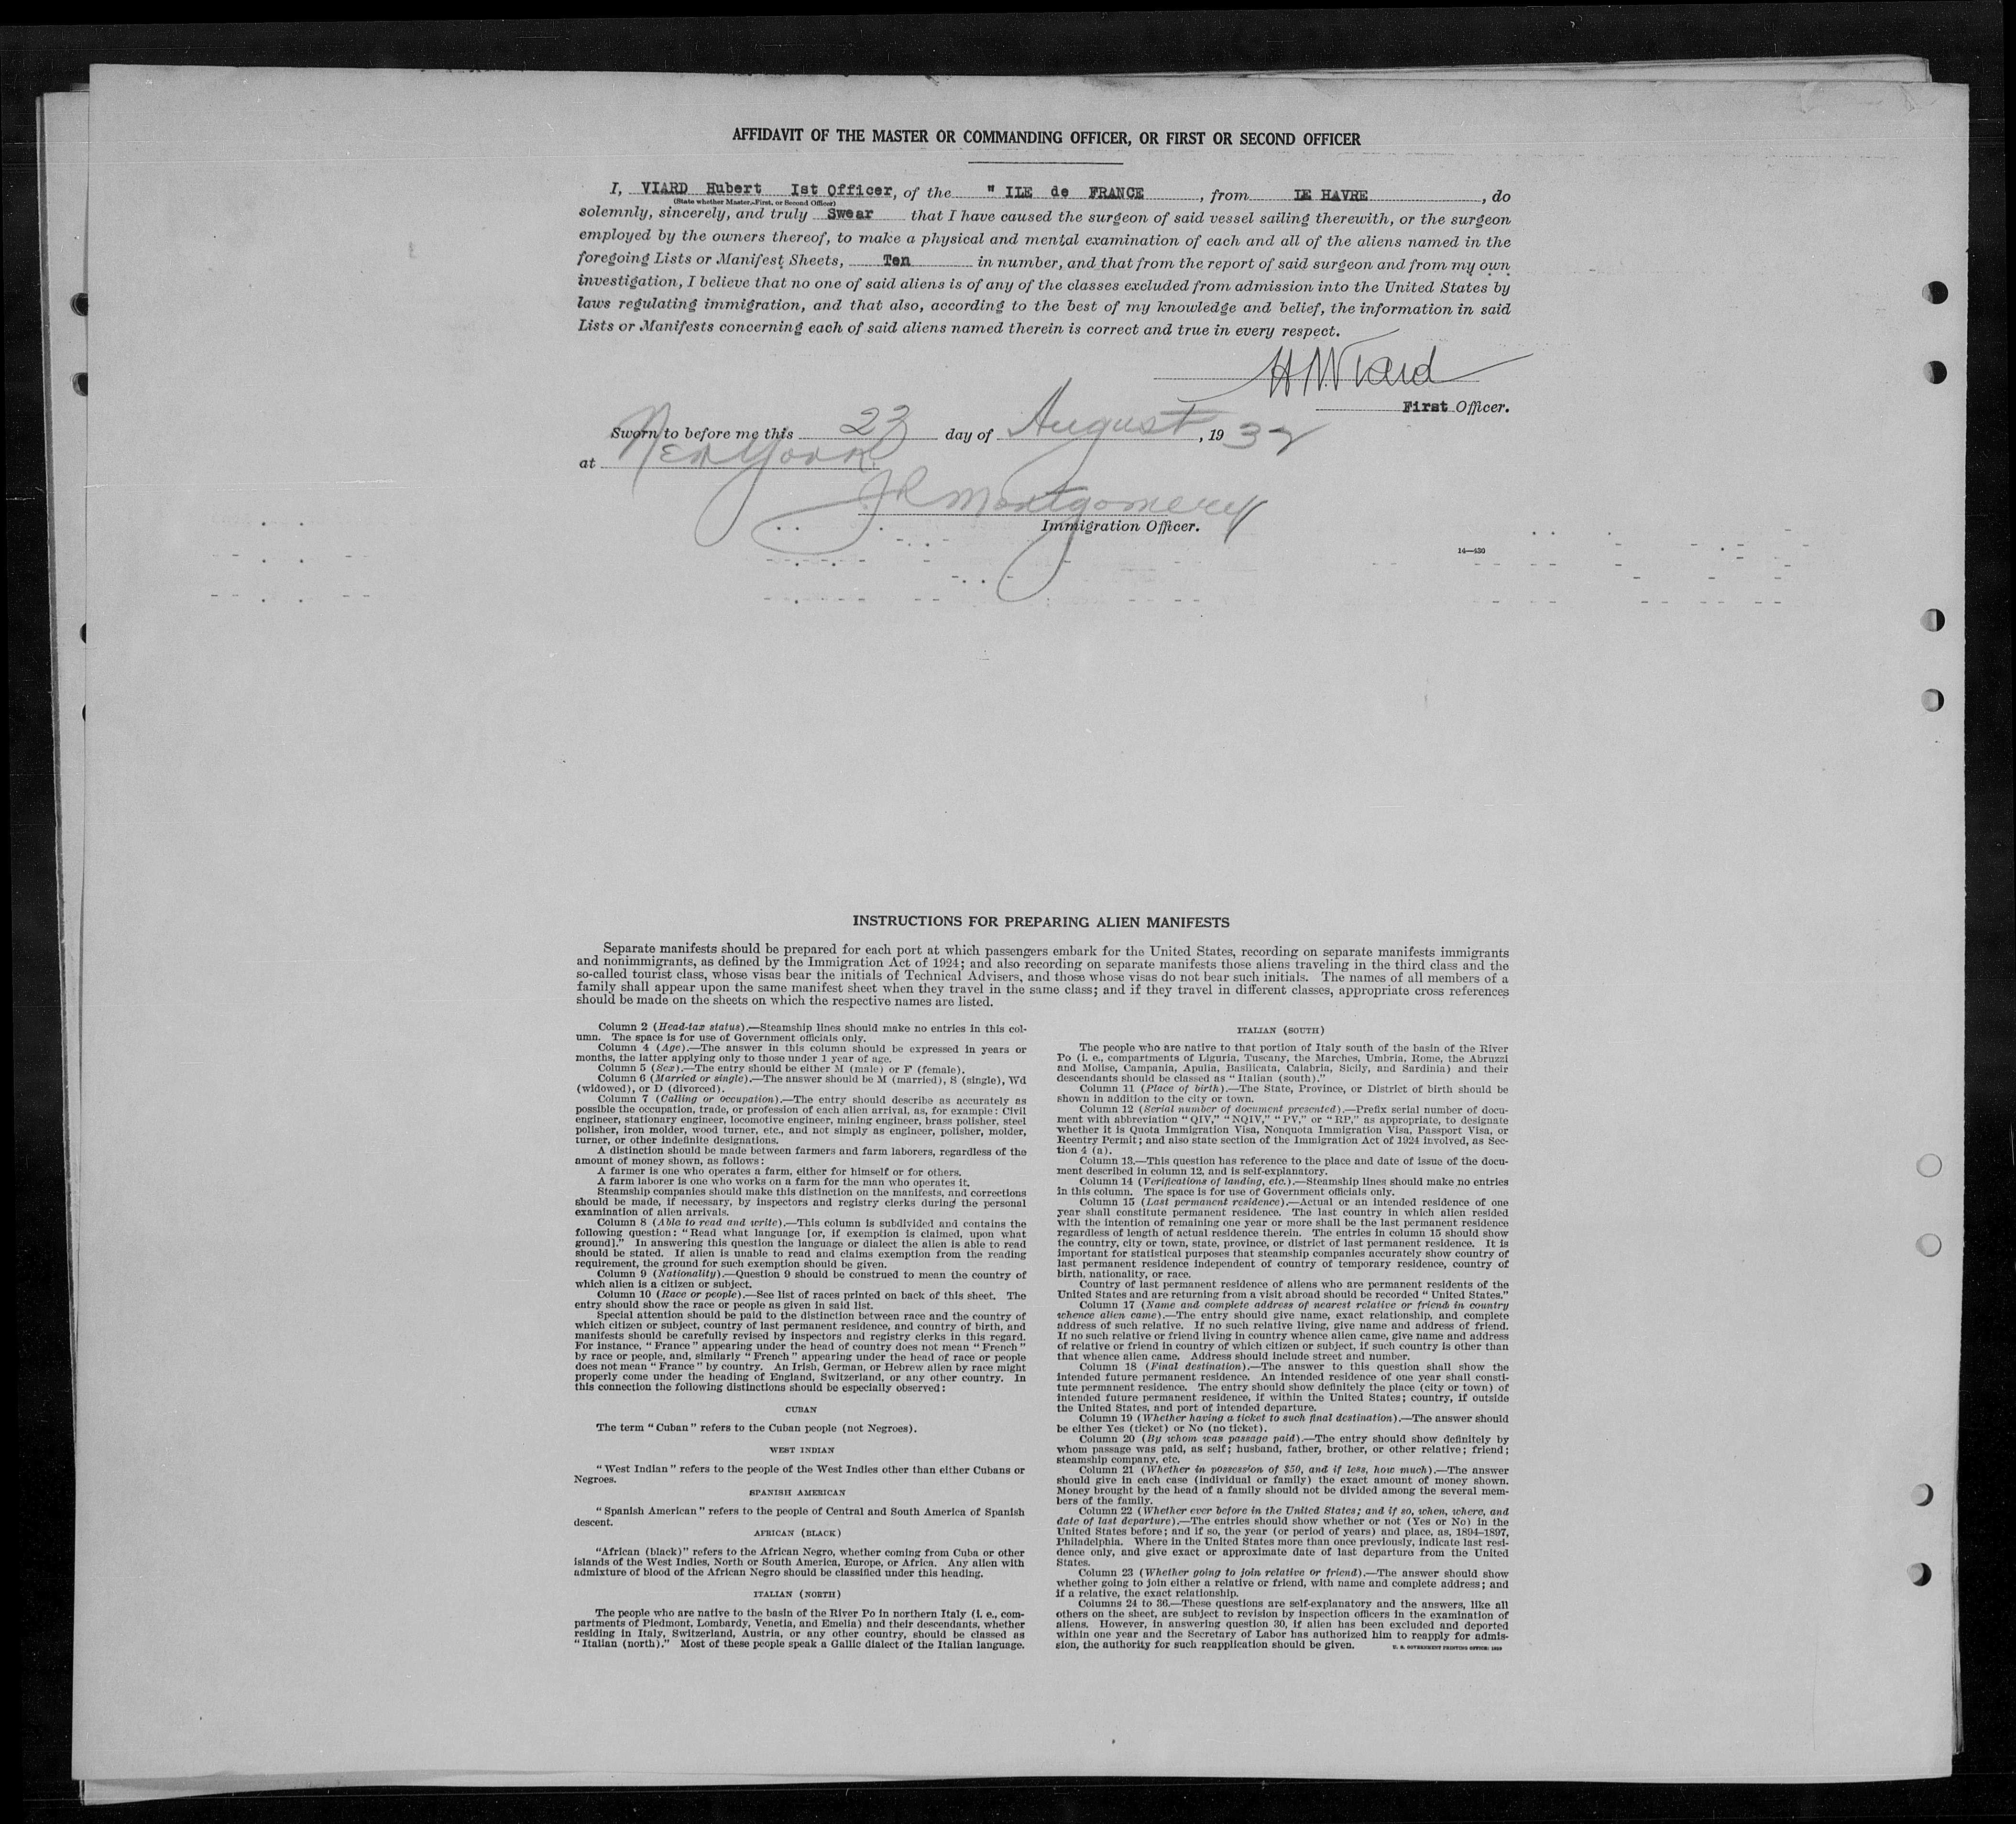 AFFIDAVIT OF THE MASTER OR COMMANDING OFFICER, OR FIRST OR SECOND OFFICER
I, VIARD Hubert Ist Officer, of the " ILE de FRANCE , from LE HAVRE , do
(State whether Master, First, or Second Officer)
solemnly, sincerely, and truly Swear that I have caused the surgeon of said vessel sailing therewith, or the surgeon
employed by the owners thereof, to make a physical and mental examination of each and all of the aliens named in the
foregoing Lists or Manifest Sheets, Ten in number, and that from the report of said surgeon and from my own
investigation, I believe that no one of said aliens is of any of the classes excluded from admission into the United States by
laws regulating immigration, and that also, according to the best of my knowledge and belief, the information in said
Lists or Manifests concerning each of said aliens named therein is correct and true in every respect.
H Viard
First Officer.
Sworn to before me this 23 day of August , 1932
at New York
J R Montgomery
Immigration Officer.
14—430
INSTRUCTIONS FOR PREPARING ALIEN MANIFESTS
Separate manifests should be prepared for each port at which passengers embark for the United States, recording on separate manifests immigrants
and nonimmigrants, as defined by the Immigration Act of 1924; and also recording on separate manifests those aliens traveling in the third class and the
so-called tourist class, whose visas bear the initials of Technical Advisers, and those whose visas do not bear such initials. The names of all members of a
family shall appear upon the same manifest sheet when they travel in the same class; and if they travel in different classes, appropriate cross references
should be made on the sheets on which the respective names are listed.
Column 2 (Head-tax status).—Steamship lines should make no entries in this col-
umn. The space is for use of Government officials only.
Column 4 (Age).—The answer in this column should be expressed in years or
months, the latter applying only to those under 1 year of age.
Column 5 (Sex).—The entry should be either M (male) or F (female).
Column 6 (Married or single).—The answer should be M (married), S (single), Wd
(widowed), or D (divorced).
Column 7 (Calling or occupation).—The entry should describe as accurately as
possible the occupation, trade, or profession of each alien arrival, as, for example: Civil
engineer, stationary engineer, locomotive engineer, mining engineer, brass polisher, steel
polisher, iron molder, wood turner, etc., and not simply as engineer, polisher, molder,
turner, or other indefinite designations.
A distinction should be made between farmers and farm laborers, regardless of the
amount of money shown, as follows:
A farmer is one who operates a farm, either for himself or for others.
A farm laborer is one who works on a farm for the man who operates it.
Steamship companies should make this distinction on the manifests, and corrections
should be made, if necessary, by inspectors and registry clerks during the personal
examination of alien arrivals.
Column 8 (Able to read and write).—This column is subdivided and contains the
following question: “Read what language [or, if exemption is claimed, upon what
ground].” In answering this question the language or dialect the alien is able to read
should be stated. If alien is unable to read and claims exemption from the reading
requirement, the ground for such exemption should be given.
Column 9 (Nationality).—Question 9 should be construed to mean the country of
which alien is a citizen or subject.
Column 10 (Race or people).—See list of races printed on back of this sheet. The
entry should show the race or people as given in said list.
Special attention should be paid to the distinction between race and the country of
which citizen or subject, country of last permanent residence, and country of birth, and
manifests should be carefully revised by inspectors and registry clerks in this regard.
For instance, “France” appearing under the head of country does not mean “French”
by race or people, and, similarly “French” appearing under the head of race or people
does not mean “France” by country. An Irish, German, or Hebrew alien by race might
properly come under the heading of England, Switzerland, or any other country. In
this connection the following distinctions should be especially observed:
CUBAN
The term “Cuban” refers to the Cuban people (not Negroes).
WEST INDIAN
“West Indian” refers to the people of the West Indies other than either Cubans or
Negroes.
SPANISH AMERICAN
“Spanish American” refers to the people of Central and South America of Spanish
descent.
AFRICAN (BLACK)
“African (black)” refers to the African Negro, whether coming from Cuba or other
islands of the West Indies, North or South America, Europe, or Africa. Any alien with
admixture of blood of the African Negro should be classified under this heading.
ITALIAN (NORTH)
The people who are native to the basin of the River Po in northern Italy (i. e., com-
partments of Piedmont, Lombardy, Venetia, and Emelia) and their descendants, whether
residing in Italy, Switzerland, Austria, or any other country, should be classed as
“Italian (north).” Most of these people speak a Gallic dialect of the Italian language.
ITALIAN (SOUTH)
The people who are native to that portion of Italy south of the basin of the River
Po (i. e., compartments of Liguria, Tuscany, the Marches, Umbria, Rome, the Abruzzi
and Molise, Campania, Apulia, Basilicata, Calabria, Sicily, and Sardinia) and their
descendants should be classed as “Italian (south).”
Column 11 (Place of birth).—The State, Province, or District of birth should be
shown in addition to the city or town.
Column 12 (Serial number of document presented).—Prefix serial number of docu-
ment with abbreviation “QIV,” “NQIV,” “PV,” or “RP,” as appropriate, to designate
whether it is Quota Immigration Visa, Nonquota Immigration Visa, Passport Visa, or
Reentry Permit; and also state section of the Immigration Act of 1924 involved, as Sec-
tion 4 (a).
Column 13.—This question has reference to the place and date of issue of the docu-
ment described in column 12, and is self-explanatory.
Column 14 (Verifications of landing, etc.).—Steamship lines should make no entries
in this column. The space is for use of Government officials only.
Column 15 (Last permanent residence).—Actual or an intended residence of one
year shall constitute permanent residence. The last country in which alien resided
with the intention of remaining one year or more shall be the last permanent residence
regardless of length of actual residence therein. The entries in column 15 should show
the country, city or town, state, province, or district of last permanent residence. It is
important for statistical purposes that steamship companies accurately show country of
last permanent residence independent of country of temporary residence, country of
birth, nationality, or race.
Country of last permanent residence of aliens who are permanent residents of the
United States and are returning from a visit abroad should be recorded “United States.”
Column 17 (Name and complete address of nearest relative or friend in country
whence alien came).—The entry should give name, exact relationship, and complete
address of such relative. If no such relative living, give name and address of friend.
If no such relative or friend living in country whence alien came, give name and address
of relative or friend in country of which citizen or subject, if such country is other than
that whence alien came. Address should include street and number.
Column 18 (Final destination).—The answer to this question shall show the
intended future permanent residence. An intended residence of one year shall consti-
tute permanent residence. The entry should show definitely the place (city or town) of
intended future permanent residence, if within the United States; country, if outside
the United States, and port of intended departure.
Column 19 (Whether having a ticket to such final destination).—The answer should
be either Yes (ticket) or No (no ticket).
Column 20 (By whom was passage paid).—The entry should show definitely by
whom passage was paid, as self; husband, father, brother, or other relative; friend;
steamship company, etc.
Column 21 (Whether in possession of $50, and if less, how much).—The answer
should give in each case (individual or family) the exact amount of money shown.
Money brought by the head of a family should not be divided among the several mem-
bers of the family.
Column 22 (Whether ever before in the United States; and if so, when, where, and
date of last departure).—The entries should show whether or not (Yes or No) in the
United States before; and if so, the year (or period of years) and place, as, 1894–1897,
Philadelphia. Where in the United States more than once previously, indicate last resi-
dence only, and give exact or approximate date of last departure from the United
States.
Column 23 (Whether going to join relative or friend).—The answer should show
whether going to join either a relative or friend, with name and complete address; and
if a relative, the exact relationship.
Columns 24 to 36.—These questions are self-explanatory and the answers, like all
others on the sheet, are subject to revision by inspection officers in the examination of
aliens. However, in answering question 30, if alien has been excluded and deported
within one year and the Secretary of Labor has authorized him to reapply for admis-
sion, the authority for such reapplication should be given.
U. S. GOVERNMENT PRINTING OFFICE: 1929